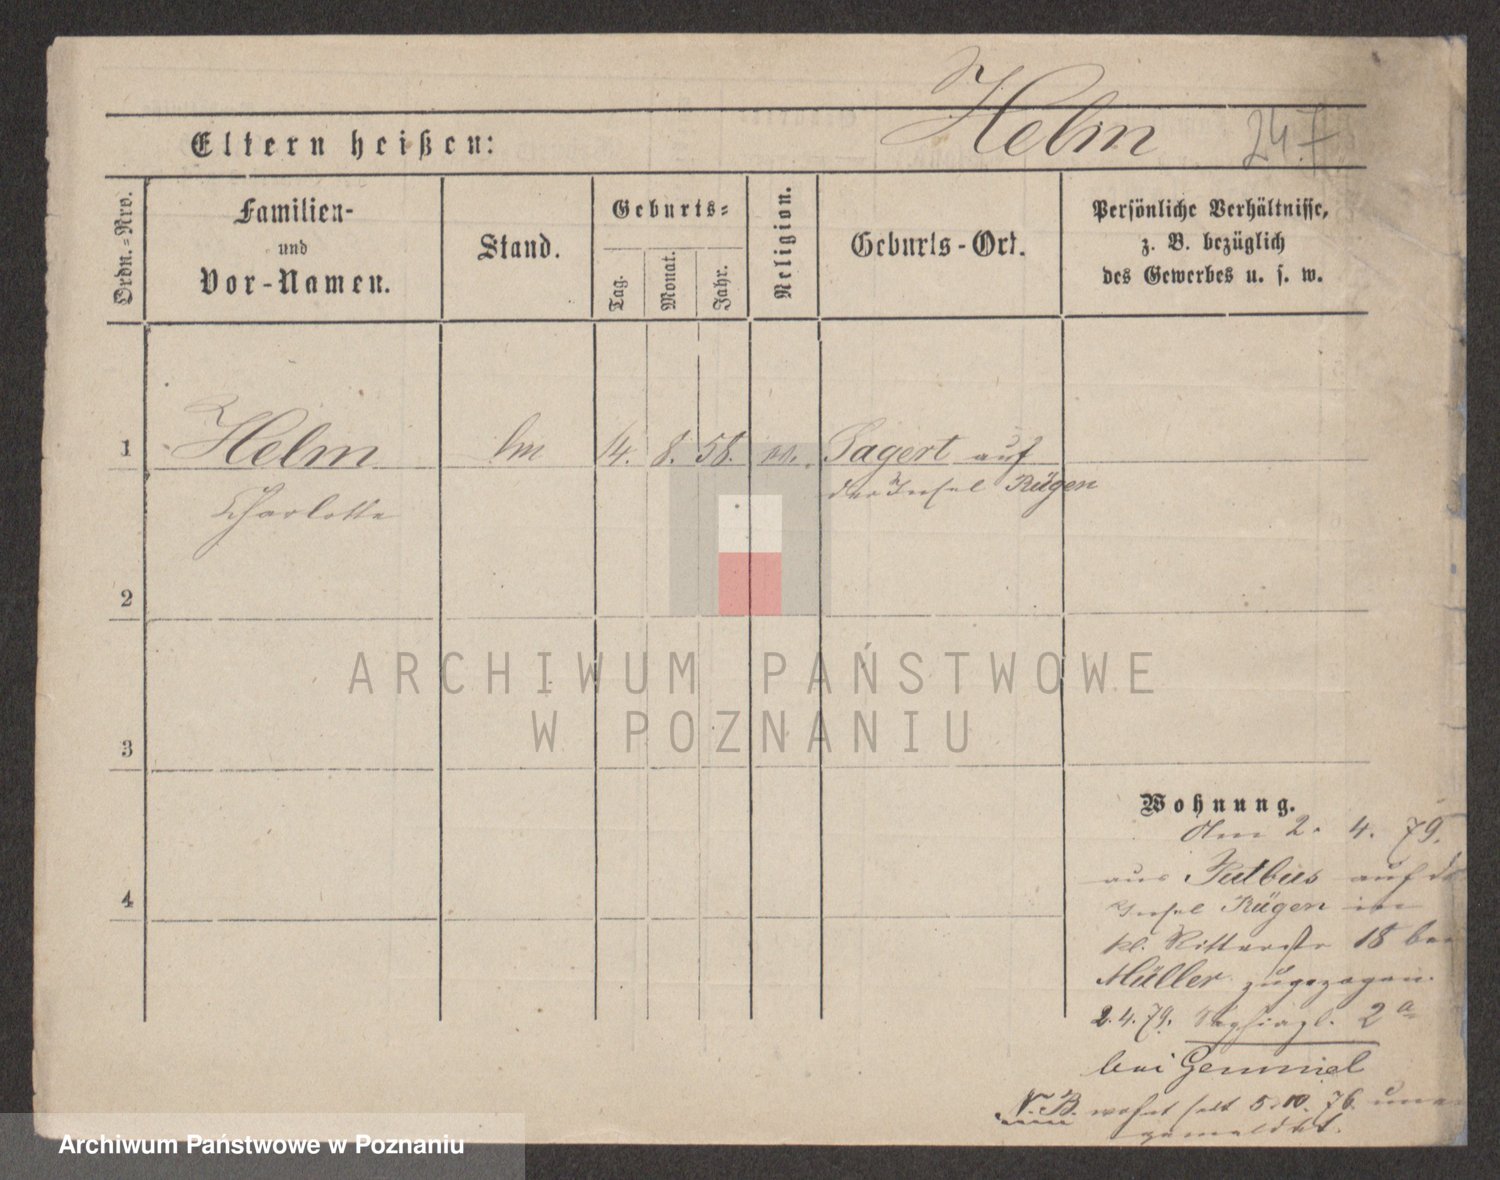 Helm
247
Eltern heißen:
Ordn.=Nro.
Familien-
und
Vor-Namen.
Stand.
Geburts=
Tag.
Monat.
Jahr.
Religion.
Geburts-Ort.
Persönliche Verhältnisse,
z. B. bezüglich
des Gewerbes u. s. w.
1
Helm
14. 8. 58.
auf
Charlotte
der Insel Rügen
2
ARCHIWUM PAŃSTWOWE
W POZNANIU
3
Wohnung.
2. 4. 79.
4
aus Putbus auf
Insel Rügen in
kl. Ritterstr 18 bei
Müller zugezogen.
2.4.79. 2a
bei Gemmiel
N.B. wohnt seit 5.10.76
gemeldet.
Archiwum Państwowe w Poznaniu